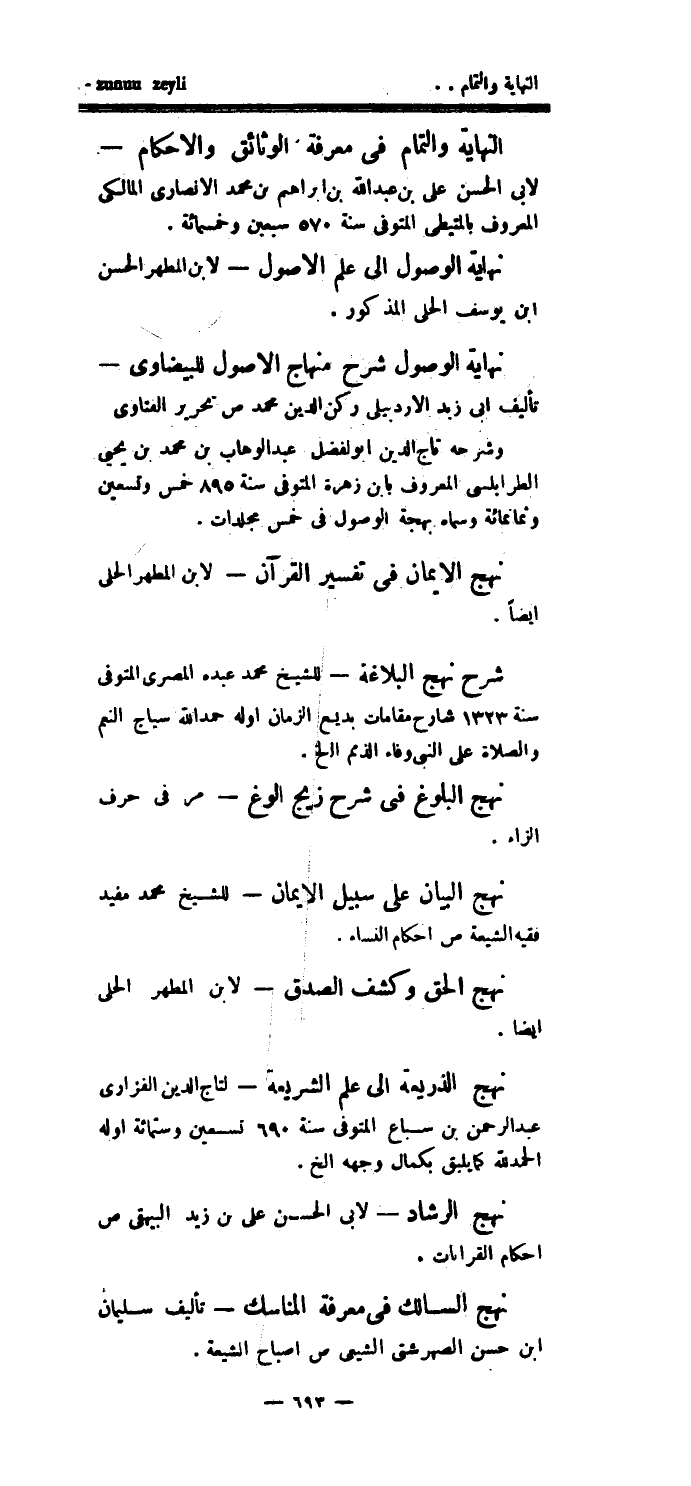 النهاية والتمام . .
- zunun zeyli
النهاية والتمام فى معرفة الوثائق والاحكام —
لابى الحسن على بن عبدالله بن ابراهيم بن محمد الانصارى المالكى
المعروف بالمتيطى المتوفى سنة ٥٧٠ سبعين وخمسمائة .
نهاية الوصول الى علم الاصول — لابن المطهر الحسن
ابن يوسف الحلى المذكور .
نهاية الوصول شرح منهاج الاصول للبيضاوى —
تأليف ابى زيد الاردبيلى ركن الدين محمد ص تحرير الفتاوى
وشرحه تاج الدين ابولفضل عبدالوهاب بن محمد بن يحيى
الطرابلسى المعروف بابن زهرة المتوفى سنة ٨٩٥ خمس وتسعين
وثمانمائة وسماه بهجة الوصول فى خمس مجلدات .
نهج الايمان فى تفسير القرآن — لابن المطهر الحلى
ايضاً .
شرح نهج البلاغة — للشيخ محمد عبده المصرى المتوفى
سنة ١٣٢٣ شارح مقامات بديع الزمان اوله حمدالله سياج النعم
والصلاة على النبى وفاء الذمم الخ .
نهج البلوغ فى شرح زيج الوغ — مر فى حرف
الزاء .
نهج البيان على سبيل الايمان — للشيخ محمد مفيد
فقيه الشيعة ص احكام النساء .
نهج الحق وكشف الصدق — لابن المطهر الحلى
ايضا .
نهج الذريعة الى علم الشريعة — لتاج الدين الفزارى
عبدالرحمن بن سباع المتوفى سنة ٦٩٠ تسعين وستمائة اوله
الحمدلله كما يليق بكمال وجهه الخ .
نهج الرشاد — لابى الحسن على بن زيد البيهقى ص
احكام القراءات .
نهج السالك فى معرفة المناسك — تأليف سليمان
ابن حسن الصهرشتى الشيعى ص اصباح الشيعة .
— ٦٩٣ —